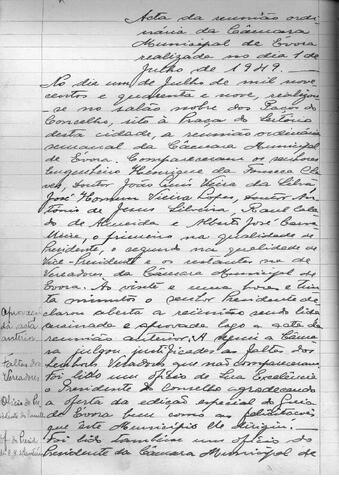 Acta da reunião ordi-
nária da Câmara
Municipal de Évora
realizada no dia 1 de
Julho de 1949.
No dia um de Julho de mil nove
centos e quarenta e nove, realizou-
se no salão nobre dos Paços do
Concelho, sito à Praça do Sertório
desta cidade, a reunião ordinária
semanal da Câmara Municipal
de Évora. Compareceram os senhores
Engenheiro Henrique da Fonseca Cha-
ves, Doutor João Luís Vieira da Silva,
José Vieira Lopes, Doutor An-
tónio de Jesus Silveira, Raul
do de Almeida e Alberto José
o primeiro na qualidade de
Presidente, o segundo na qualidade de
Vice-Presidente e os restantes na de
Vereadores da Câmara Municipal de
Évora. Às vinte e uma horas e trin
ta minutos o senhor Presidente de-
clarou aberta a reunião sendo lida
assinada e aprovada logo a acta da
reunião anterior. A seguir a Câma
ra julgou justificadas as faltas dos
senhores Vereadores que não compareceram
Foi lido um ofício de Sua Excelência
o Presidente do Conselho agradecendo
a oferta da edição especial do Guia
de Évora bem como as
que este Município lhe dirigiu.
Foi lido também um ofício do
Presidente da Câmara Municipal de
Aprovação
da acta
anterior
Faltas dos
Vereadores
Ofício do Pre
sidente do
Of. do Presid.